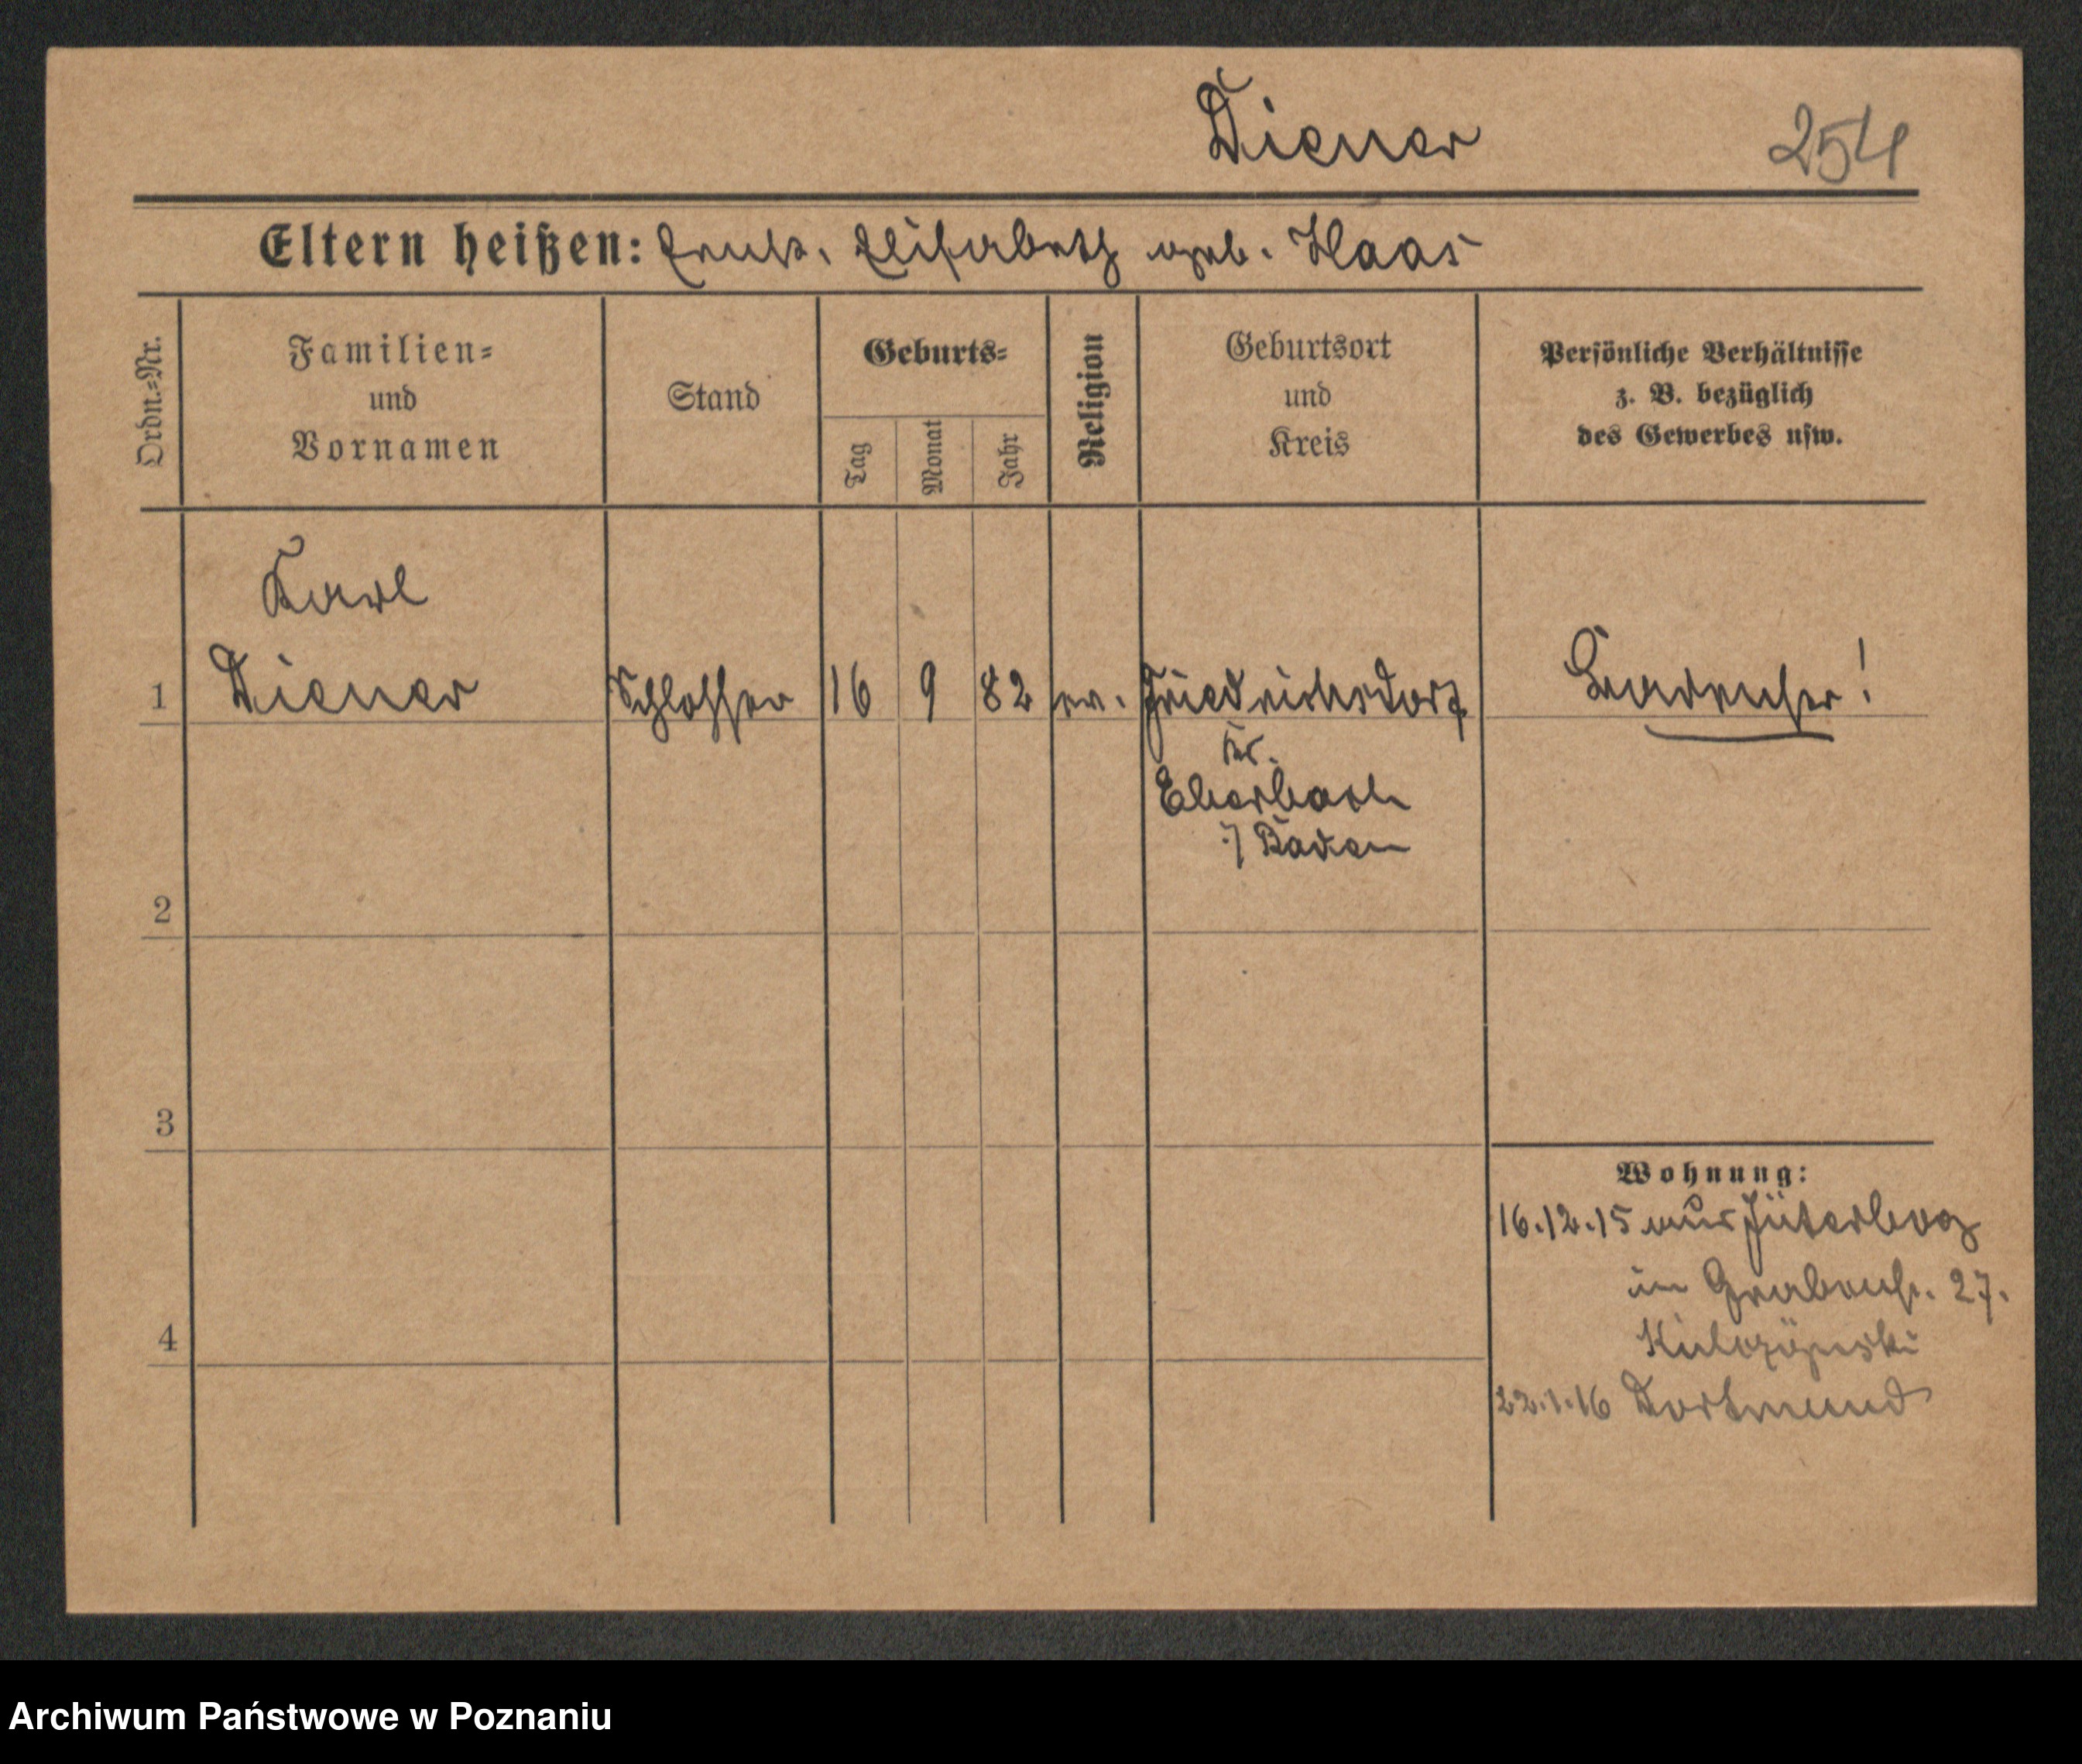 Diener
254
Eltern heißen: Ernst, Elisabeth geb. Haas
Ordn.=Nr.
Familien=
und
Vornamen
Stand
Geburts=
Tag
Monat
Jahr
Religion
Geburtsort
und
Kreis
Persönliche Verhältnisse
z. B. bezüglich
des Gewerbes usw.
Karl
1 Diener Schlosser 16 9 82 ev. Friedrichsdorf Badenser!
Kr.
Eberbach
i/ Baden
2
3
4
Wohnung:
16.12.15 aus Jüterbog
in Grabenstr. 27.
22.1.16 Dortmund
Archiwum Państwowe w Poznaniu